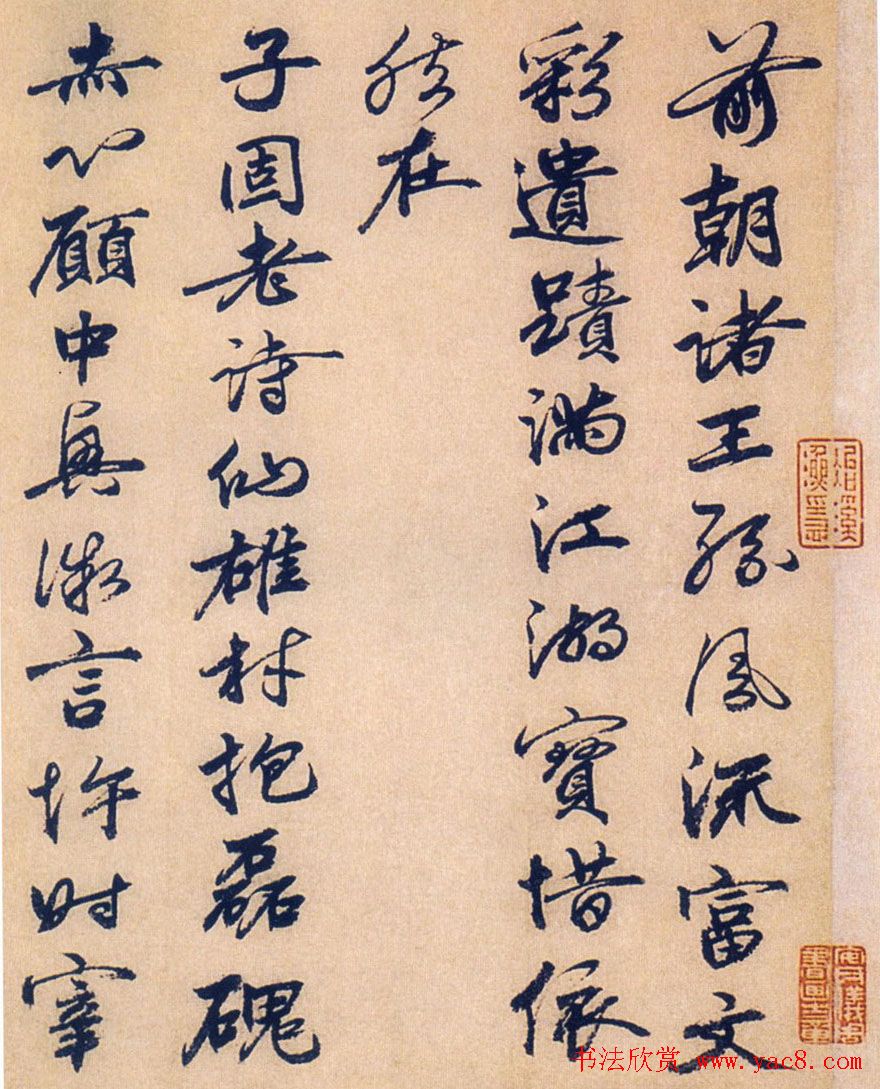 前朝諸王孫風流富文
彩遺蹟滿江湖寶惜依
然在
子固老詩仙雄材抱磊磈
赤心顧中興微言忤时宰
书法欣赏 www.yac8.com